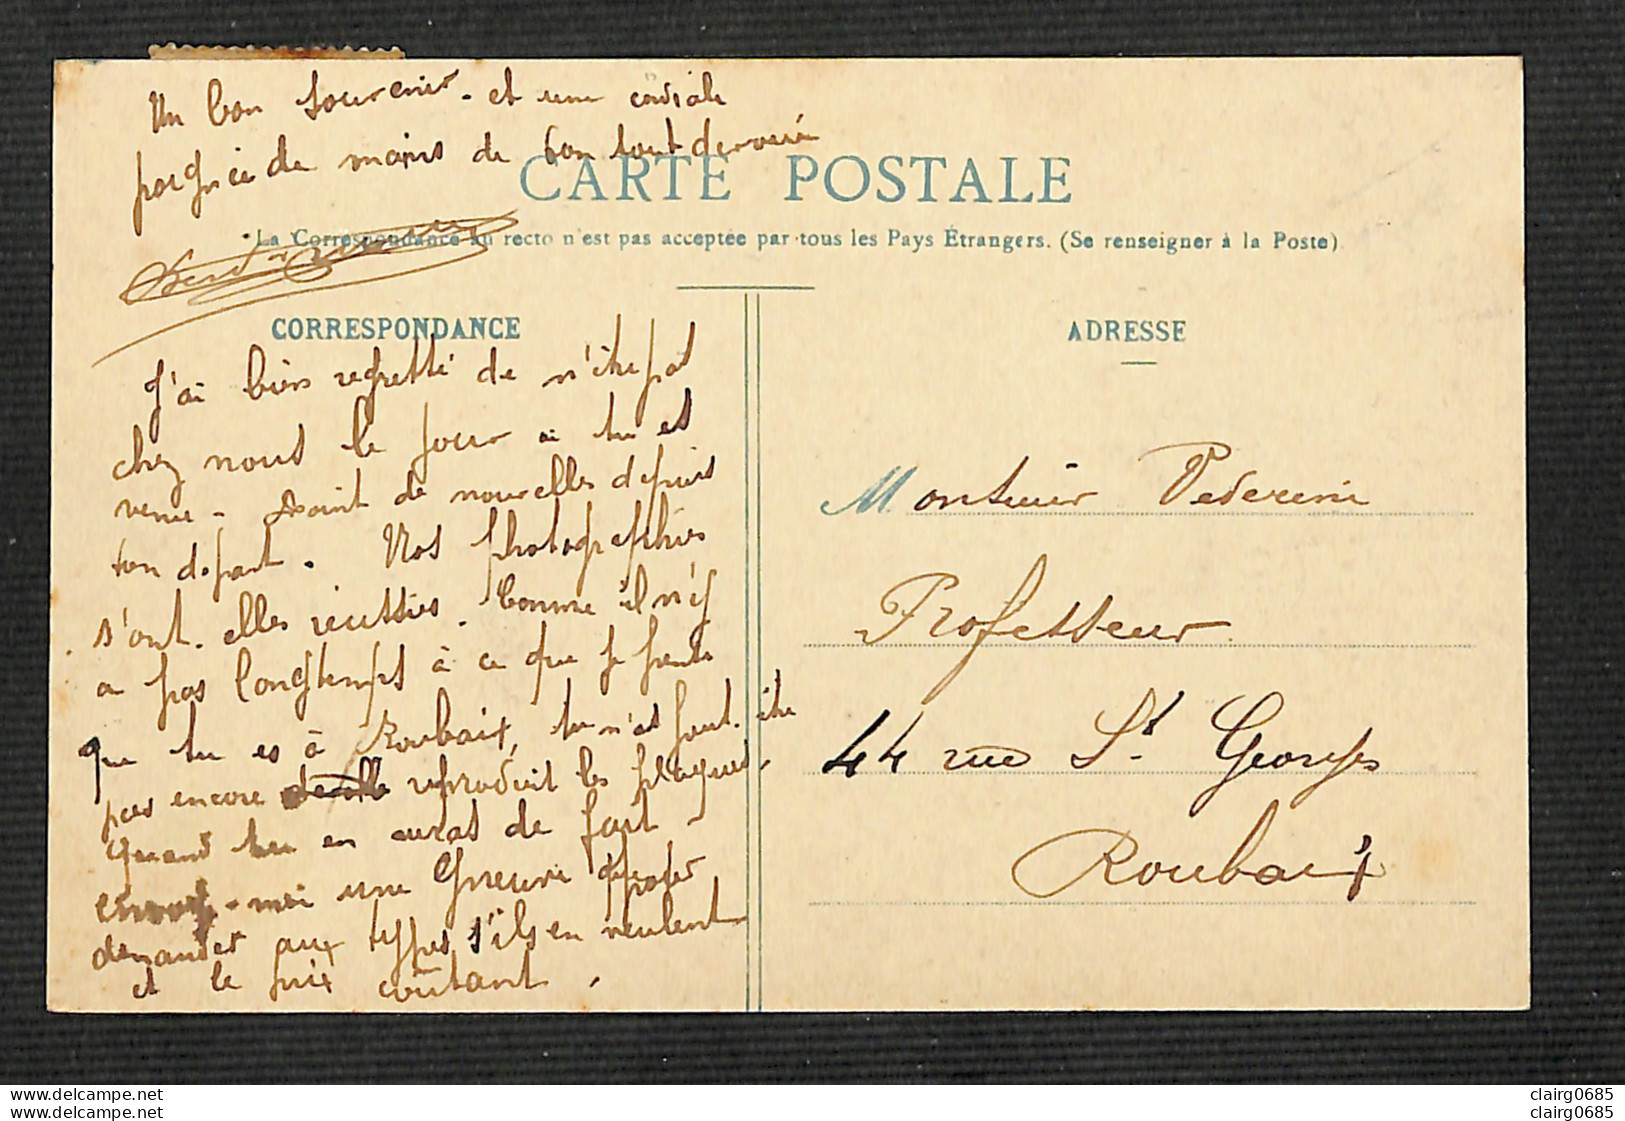 Un bon souvenir. et une cordiale
poignée de mains de ton tout devoué
CARTE POSTALE
La Correspondance au recto n'est pas acceptée par tous les Pays Étrangers. (Se renseigner à la Poste)
CORRESPONDANCE
J'ai bien regretté de n'être pas
chez nous le jour où tu es
venu - Point de nouvelles depuis
ton départ. Nos photographies
s'ont-elles réussies. Comme il n'y
a pas longtemps à ce que je pense
que tu es à Roubaix, tu n'as peut-être
pas encore reproduit les plaques.
Quand tu en auras de fait
envoye-moi une épreuve pour
demander aux types s'ils en veulent
et le prix coûtant.
ADRESSE
Monsieur Pederini
Professeur
44 rue St. Georges
Roubaix
clairg0685
clairg0685
clairg0685
clairg0685